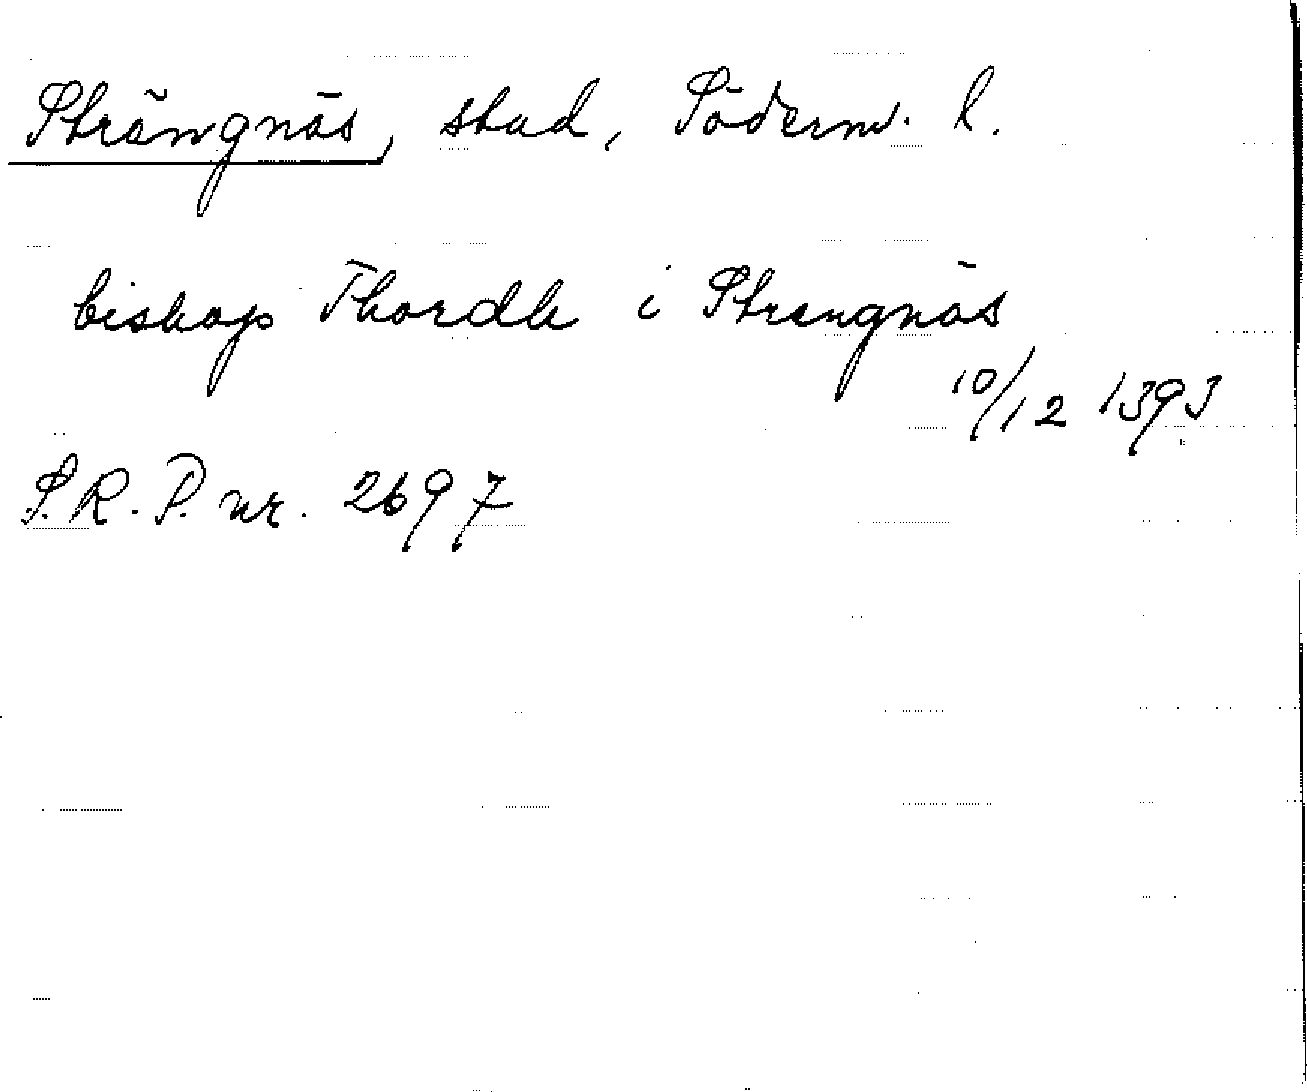 Strängnäs, stad, Söderm. l.
biskop Thordh i Strengnäs
10/12 1393
S.R.P. nr. 2697